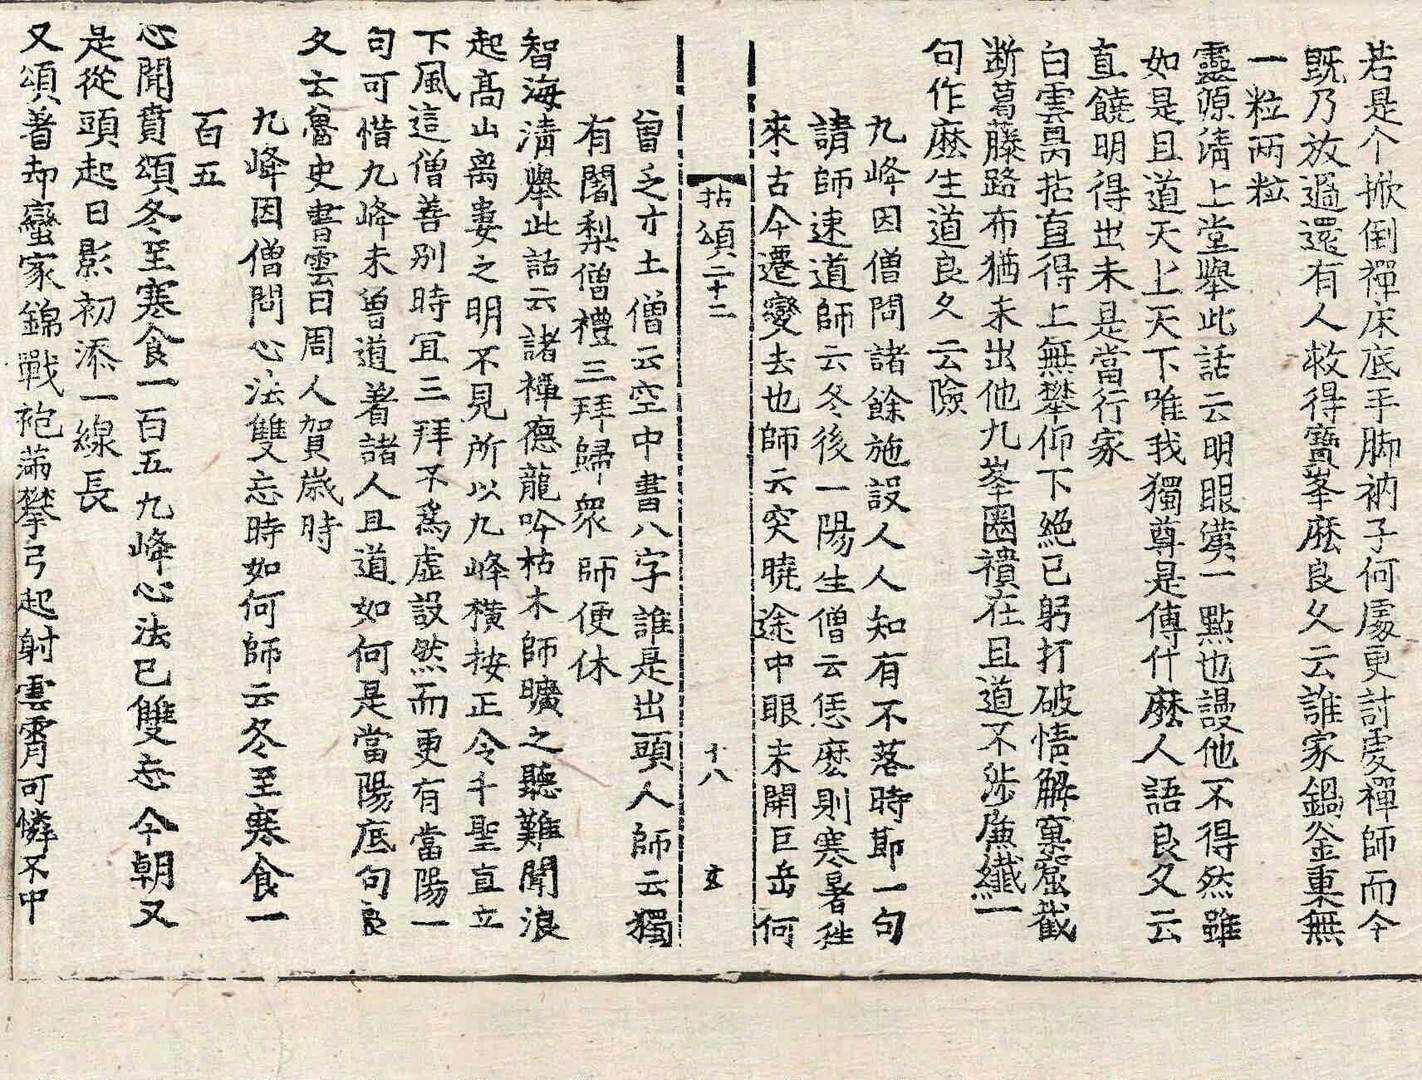 若是个掀倒禪床底手脚衲子何處更討虔禪師而今
既乃放過還有人救得寶峯麽良久云誰家鍋釜裏無
一粒两粒
靈源清上堂舉此話云明眼漢一點也謾他不得然雖
如是且道天上天下唯我獨尊是傳什麽人語良久云
直饒明得出未是當行家
白雲昺拈直得上無攀仰下絶己躬打破悟解窠窟截
断葛藤路布猶未出他九峯圈䙡在且道不涉廉纖一
句作麽生道良久云險
九峰因僧問諸餘施設人人知有不落時耶一句
請師速道師云冬後一陽生僧云恁麽則寒暑往
來古今遷變去也師云突曉途中眼未開巨岳何
拈頌二十二 十八 玄
曾乏寸土僧云空中書八字誰是出頭人師云獨
有闍梨僧禮三拜歸衆師便休
智海清舉此話云諸禪德龍吟枯木師曠之聽難聞浪
起高山离婁之明不見所以九峰橫按正令千聖直立
下風這僧善别時宜三拜不爲虛設然而更有當陽一
句可惜九峰未曾道着諸人且道如何是當陽底句良
久云魯史書雲日周人賀歲時
九峰因僧問心法雙忘時如何師云冬至寒食一
百五
心聞賁頌冬至寒食一百五九峰心法已雙忘今朝又
是從頭起日影初添一線長
又頌着却蠻家錦戰袍滿攀弓起射雲霄可憐不中